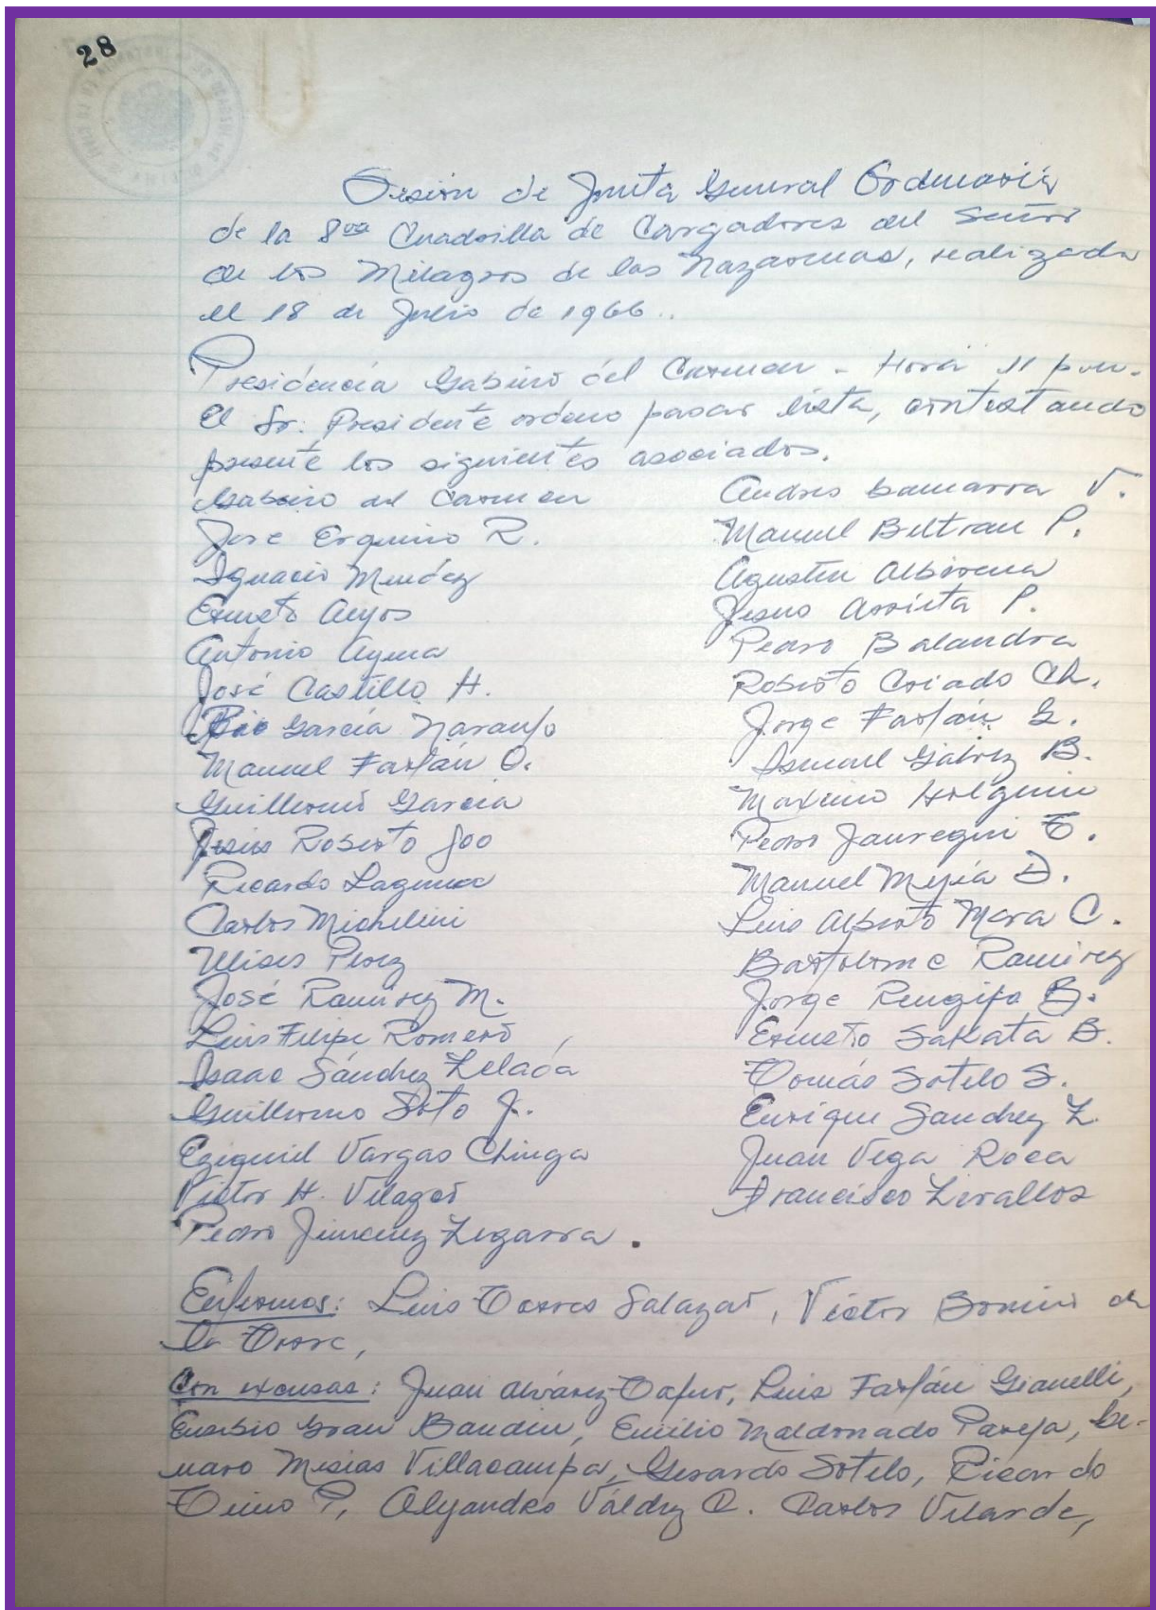 28
Sesión de Junta General Ordinaria
de la 8va Cuadrilla de Cargadores del Señor
de los Milagros de las Nazarenas, realizada
el 18 de Julio de 1966..
Presidencia Gabino del Carmen - Hora 11 p.m.
El Sr. Presidente ordeno pasar lista, contestando
presente los siguientes asociados.
Gabino del Carmen
José Erquinio R.
Ignacio Mendez
Ernesto
Antonio
José Castillo H.
García Naranjo
Manuel Farfán O.
Guillermo García
Jesús Roberto Joo
Ricardo Laguna
Carlos Michelini
Ulises Perez
José Ramírez M.
Luis Felipe Romero
Isaac Sánchez Zelada
Guillermo Soto J.
Ezequiel Vargas Chinga
Victor H. Vilaget
Pedro Jimenez Zegarra.
Andres Gamarra V.
Manuel Beltran P.
Agustin
Jesus Arrieta P.
Pedro Balandra
Roberto Criado Ch.
Jorge Farfán G.
Ismael Galvez B.
Maximo Holguin
Pedro Jauregui T.
Manuel Mejía D.
Luis Alberto Mora C.
Bartolome Ramirez
Jorge Rengifo B.
Ernesto Sakata B.
Tomás Sotelo S.
Enrique Sanchez Z.
Juan Vega Roca
Francisco Zevallos
Enfermos: Luis Torres Salazar, Víctor de
la Torre,
Con excusas: Juan Alvárez Tafur, Luis Farfán Gianelli,
Eusebio Grau Baudin, Emilio Maldonado Pareja, Ge-
naro Mesias Villacampa, Gerardo Sotelo, Ricardo
P, Alejandro Váldez C. Carlos Vilarde,